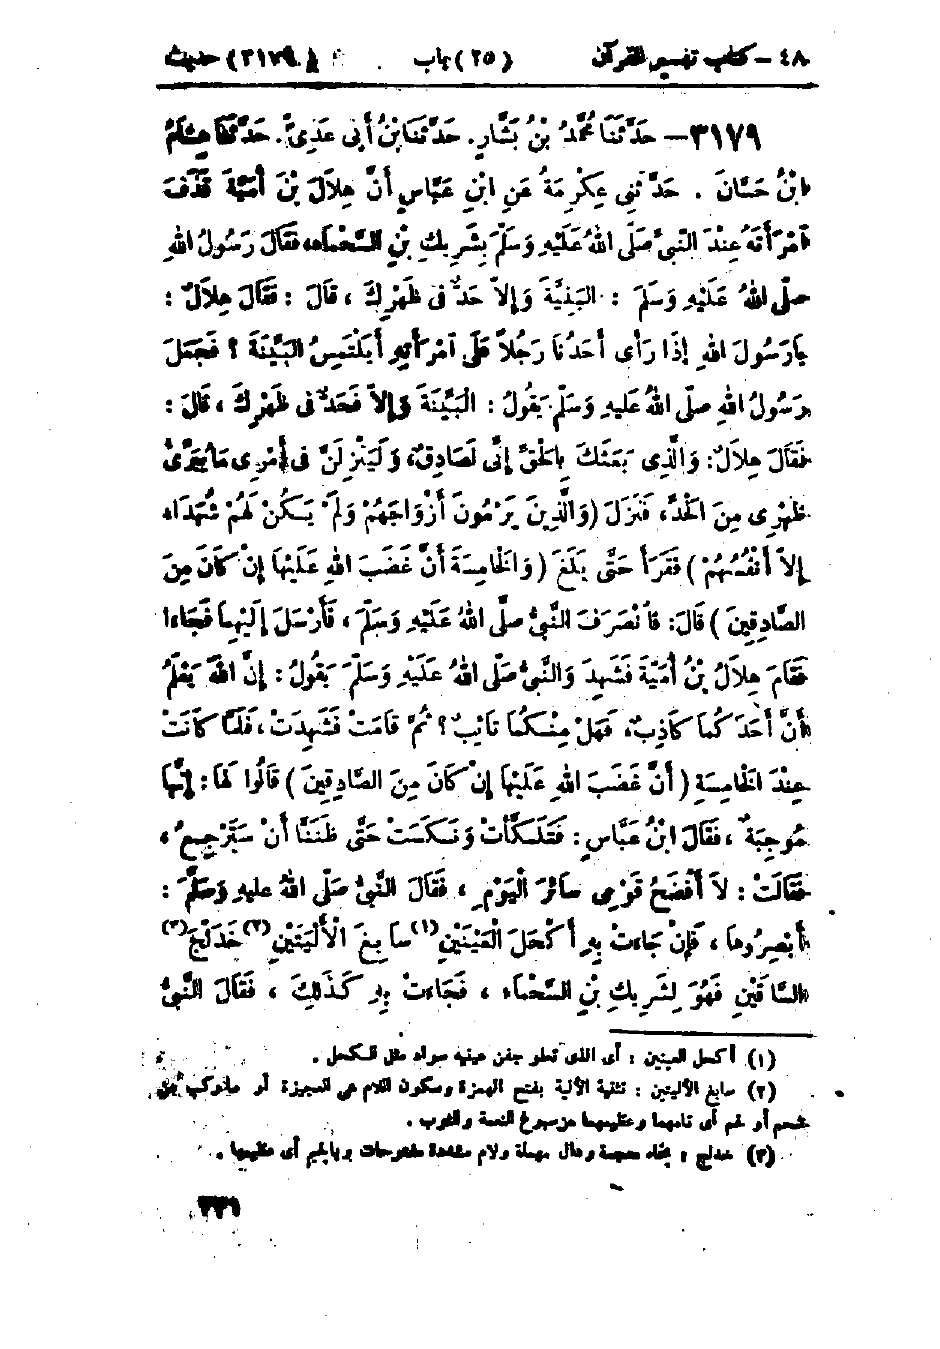 ٤٨ - كتاب تفسير القرآن (٢٥) باب (٣١٧٩) حديث
٣١٧٩ - حَدَّثَنَا مُحَمَّدُ بْنُ بَشَّارٍ. حَدَّثَنَا ابْنُ أَبِى عَدِىٍّ. حَدَّثَنَا هِشَامُ
ابْنُ حَسَّانَ . حَدَّثَنِى عِكْرِمَةُ عَنِ ابْنِ عَبَّاسٍ أَنَّ هِلَالَ بْنَ أُمَيَّةَ قَذَفَ
امْرَأَتَهُ عِنْدَ النَّبِىِّ صَلَّى اللهُ عَلَيْهِ وَسَلَّمَ بِشَرِيكِ بْنِ السَّحْمَاءِ، فَقَالَ رَسُولُ اللهِ
صَلَّى اللهُ عَلَيْهِ وَسَلَّمَ : الْبَيِّنَةَ وَإِلاَّ حَدٌّ فِى ظَهْرِكَ ، قَالَ : فَقَالَ هِلَالٌ :
يَارَسُولَ اللهِ إِذَا رَأَى أَحَدُنَا رَجُلاً عَلَى امْرَأَتِهِ أَيَلْتَمِسُ الْبَيِّنَةَ ؟ فَجَعَلَ
رَسُولُ اللهِ صَلَّى اللهُ عَلَيْهِ وَسَلَّمَ يَقُولُ : الْبَيِّنَةَ وَإِلاَّ فَحَدٌّ فِى ظَهْرِكَ ، قَالَ :
فَقَالَ هِلَالٌ: وَالَّذِى بَعَثَكَ بِالْحَقِّ إِنِّى لَصَادِقٌ، وَلَيَنْزِلَنَّ فِى أَمْرِى مَا يُبَرِّىُٔ
ظَهْرِى مِنَ الْحَدِّ، فَنَزَلَ (وَالَّذِينَ يَرْمُونَ أَزْوَاجَهُمْ وَلَمْ يَكُنْ لَهُمْ شُهَدَاءُ
إِلاَّ أَنْفُسُهُمْ) فَقَرَأَ حَتَّى بَلَغَ (وَالْخَامِسَةَ أَنَّ غَضَبَ اللهِ عَلَيْهَا إِنْ كَانَ مِنَ
الصَّادِقِينَ) قَالَ: فَانْصَرَفَ النَّبِىُّ صَلَّى اللهُ عَلَيْهِ وَسَلَّمَ ، فَأَرْسَلَ إِلَيْهِمَا فَجَاءَا
فَقَامَ هِلَالُ بْنُ أُمَيَّةَ فَشَهِدَ وَالنَّبِىُّ صَلَّى اللهُ عَلَيْهِ وَسَلَّمَ يَقُولُ : إِنَّ اللهَ يَعْلَمُ
أَنَّ أَحَدَكُمَا كَاذِبٌ، فَهَلْ مِنْكُمَا تَائِبٌ؟ ثُمَّ قَامَتْ فَشَهِدَتْ ، فَلَمَّا كَانَتْ
عِنْدَ الْخَامِسَةِ (أَنَّ غَضَبَ اللهِ عَلَيْهَا إِنْ كَانَ مِنَ الصَّادِقِينَ) قَالُوا لَهَا : إِنَّهَا
مُوجِبَةٌ ، فَقَالَ ابْنُ عَبَّاسٍ : فَتَلَكَّأَتْ وَنَكَسَتْ حَتَّى ظَنَنَّا أَنْ سَتَرْجِعُ ،
فَقَالَتْ : لاَ أَفْضَحُ قَوْمِى سَائِرَ الْيَوْمِ ، فَقَالَ النَّبِىُّ صَلَّى اللهُ عَلَيْهِ وَسَلَّمَ :
أَبْصِرُوهَا ، فَإِنْ جَاءَتْ بِهِ أَكْحَلَ الْعَيْنَيْنِ (١) سَابِغَ الْأَلْيَتَيْنِ (٢) خَدَلَّجَ (٣)
السَّاقَيْنِ فَهُوَ لِشَرِيكِ بْنِ السَّحْمَاءِ ، فَجَاءَتْ بِهِ كَذَلِكَ ، فَقَالَ النَّبِىُّ
(١) أكحل العينين : أى الذى تعلو جفن عينيه سواد مثل الكحل .
(٢) سابغ الأليتين : تثنية الألية بفتح الهمزة وسكون اللام هى العجيزة أو ماركب من
شحم أو لحم أى تامهما وعظيمهما من سبوغ النعمة والثوب .
(٣) خدلج : بخاء معجمة ودال مهملة ولام مشددة مفتوحات وبالجيم أى عظيمهما .
٣٣١